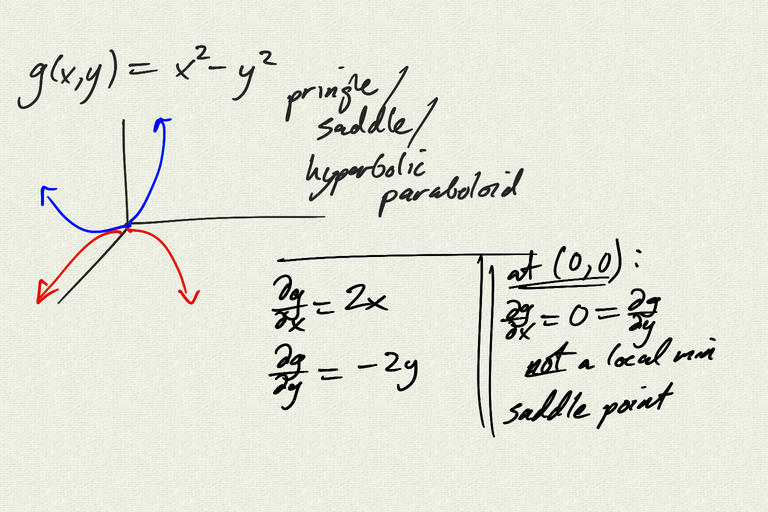 g(x,y) = x² - y²
pringle /
saddle /
hyperbolic
paraboloid
∂g/∂x = 2x
∂g/∂y = -2y
at (0,0):
∂g/∂x = 0 = ∂g/∂y
not a local min
saddle point